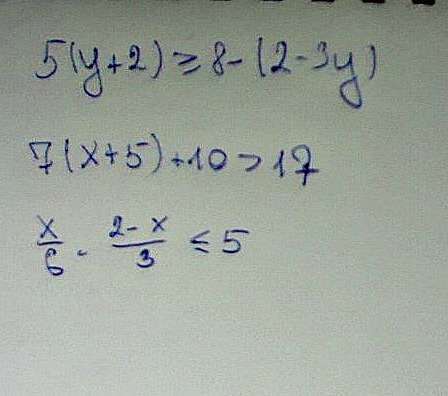 5(y+2) ≥ 8-(2-3y)
7(x+5)+10>17
x/6 - (2-x)/3 ≤ 5